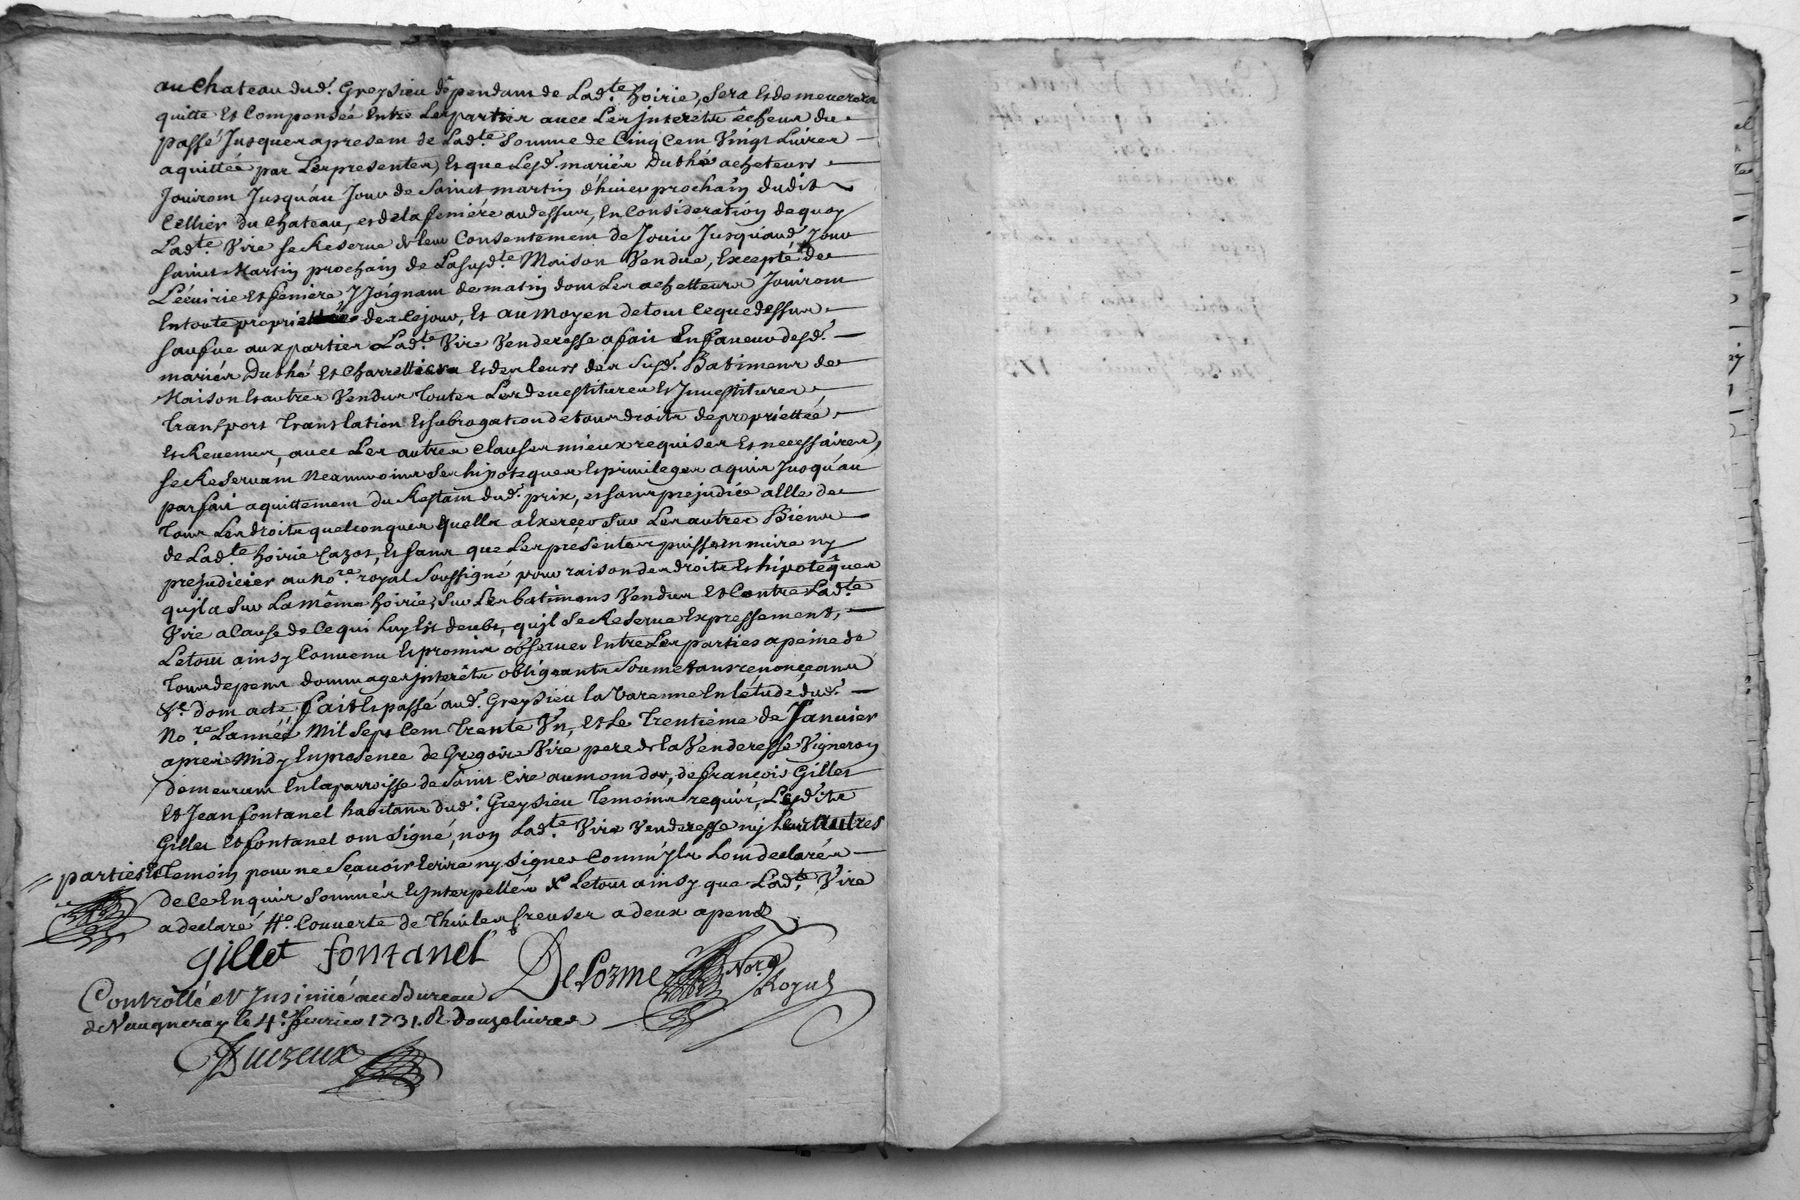 au Chateau dud.t Greysieu dépendant de Lad.te hoirie, sera Et demeurera
quitte Et Compensée Entre Les parties avec Les Interéts écheus du
passé Jusques apresent de Lad.te somme de Cinq Cent Vingt Livres
aquittée par Les presentes, Et que Lesd. mariés Duthé acheteurs
Jouiront Jusqu'au Jour de saint martin d'hiver prochain dudit
Cellier du Chateau, et de la feniére au dessus, En Consideration de quoy
Lad.te Vire se Reserve de leur Consentement de Jouir Jusqu'aud. Jour
saint Martin prochain de La susd.te Maison Vendue, Excepté de
L'écuirie Et feniere, y Joignant de matin dont Les achetteurs Jouiront
En toute propriettée des ce jour, Et au moyen de tout ce que dessus
sauf ue aux parties Lad.te Vire Venderesse a fait En faveur desd.
mariés Duthé Et Charrettiers Et des leurs des susd. Batimens de
Maison Et autres Vendus toutes Les devestitures Et Investitures
transport translation Et subrogation de tous droits de propriettée
Et Revenus, avec Les autres clauses mieux requises Et necessaires,
se Reservant Neanmoins ses hipoteques Et privileges aquis Jusqu'au
parfait aquittement du Restant dud. prix, et sans prejudice a Elle de
tous Les droits quelconques quelle a Exercer sur Les autres Biens
de Lad.te hoirie Cazot, Et sans que Les presentes puissent nuire ny
prejudicier au No.re royal soussigné pour raison des droits Et hipotéques
qu'jl a sur La même hoirie, sur Les batimens Vendus Et Contre Lad.te
Vire a Cause de Ce qui Luy Est deubt, qu'jl se Reserve Expressement,
Le tout ainsy Convenu Et promis observer Entre Les parties a peine de
tous depens dommages jnteréts obligeants soumettans renonçeans
&.c dont acte fait Et passé aud. Greysieu la Varenne En l'étude dud.
No.re L'année Mil Sept Cent trente Vn, Et Le trentiéme de Janvier
aprés Midy En presence de Gregoire Vire pere de la Venderesse Vigneron
demeurant En la parroisse de Saint Cire au mont d'or, de françois Gillet
Et Jean fontanel habitans dud. Greysieu temoins requis, Lesdits
Gillet Et fontanel ont signé, non Lad.te Vire Venderesse nj Les autres
parties Et temoin pour ne sçavoir Ecrire ny signer Comm'jls L'ont declarés
de ce Enquis sommés Et Jnterpellés Le tout ainsy que Lad.te Vire
a declaré Couverte de thuiles Creuses a deux apens
gillet fontanel
DeLorme Not.e Royal
Controllé et Jnsinüé au Bureau
de Vaugneray le 4.e fevrier 1731. R. douze livres